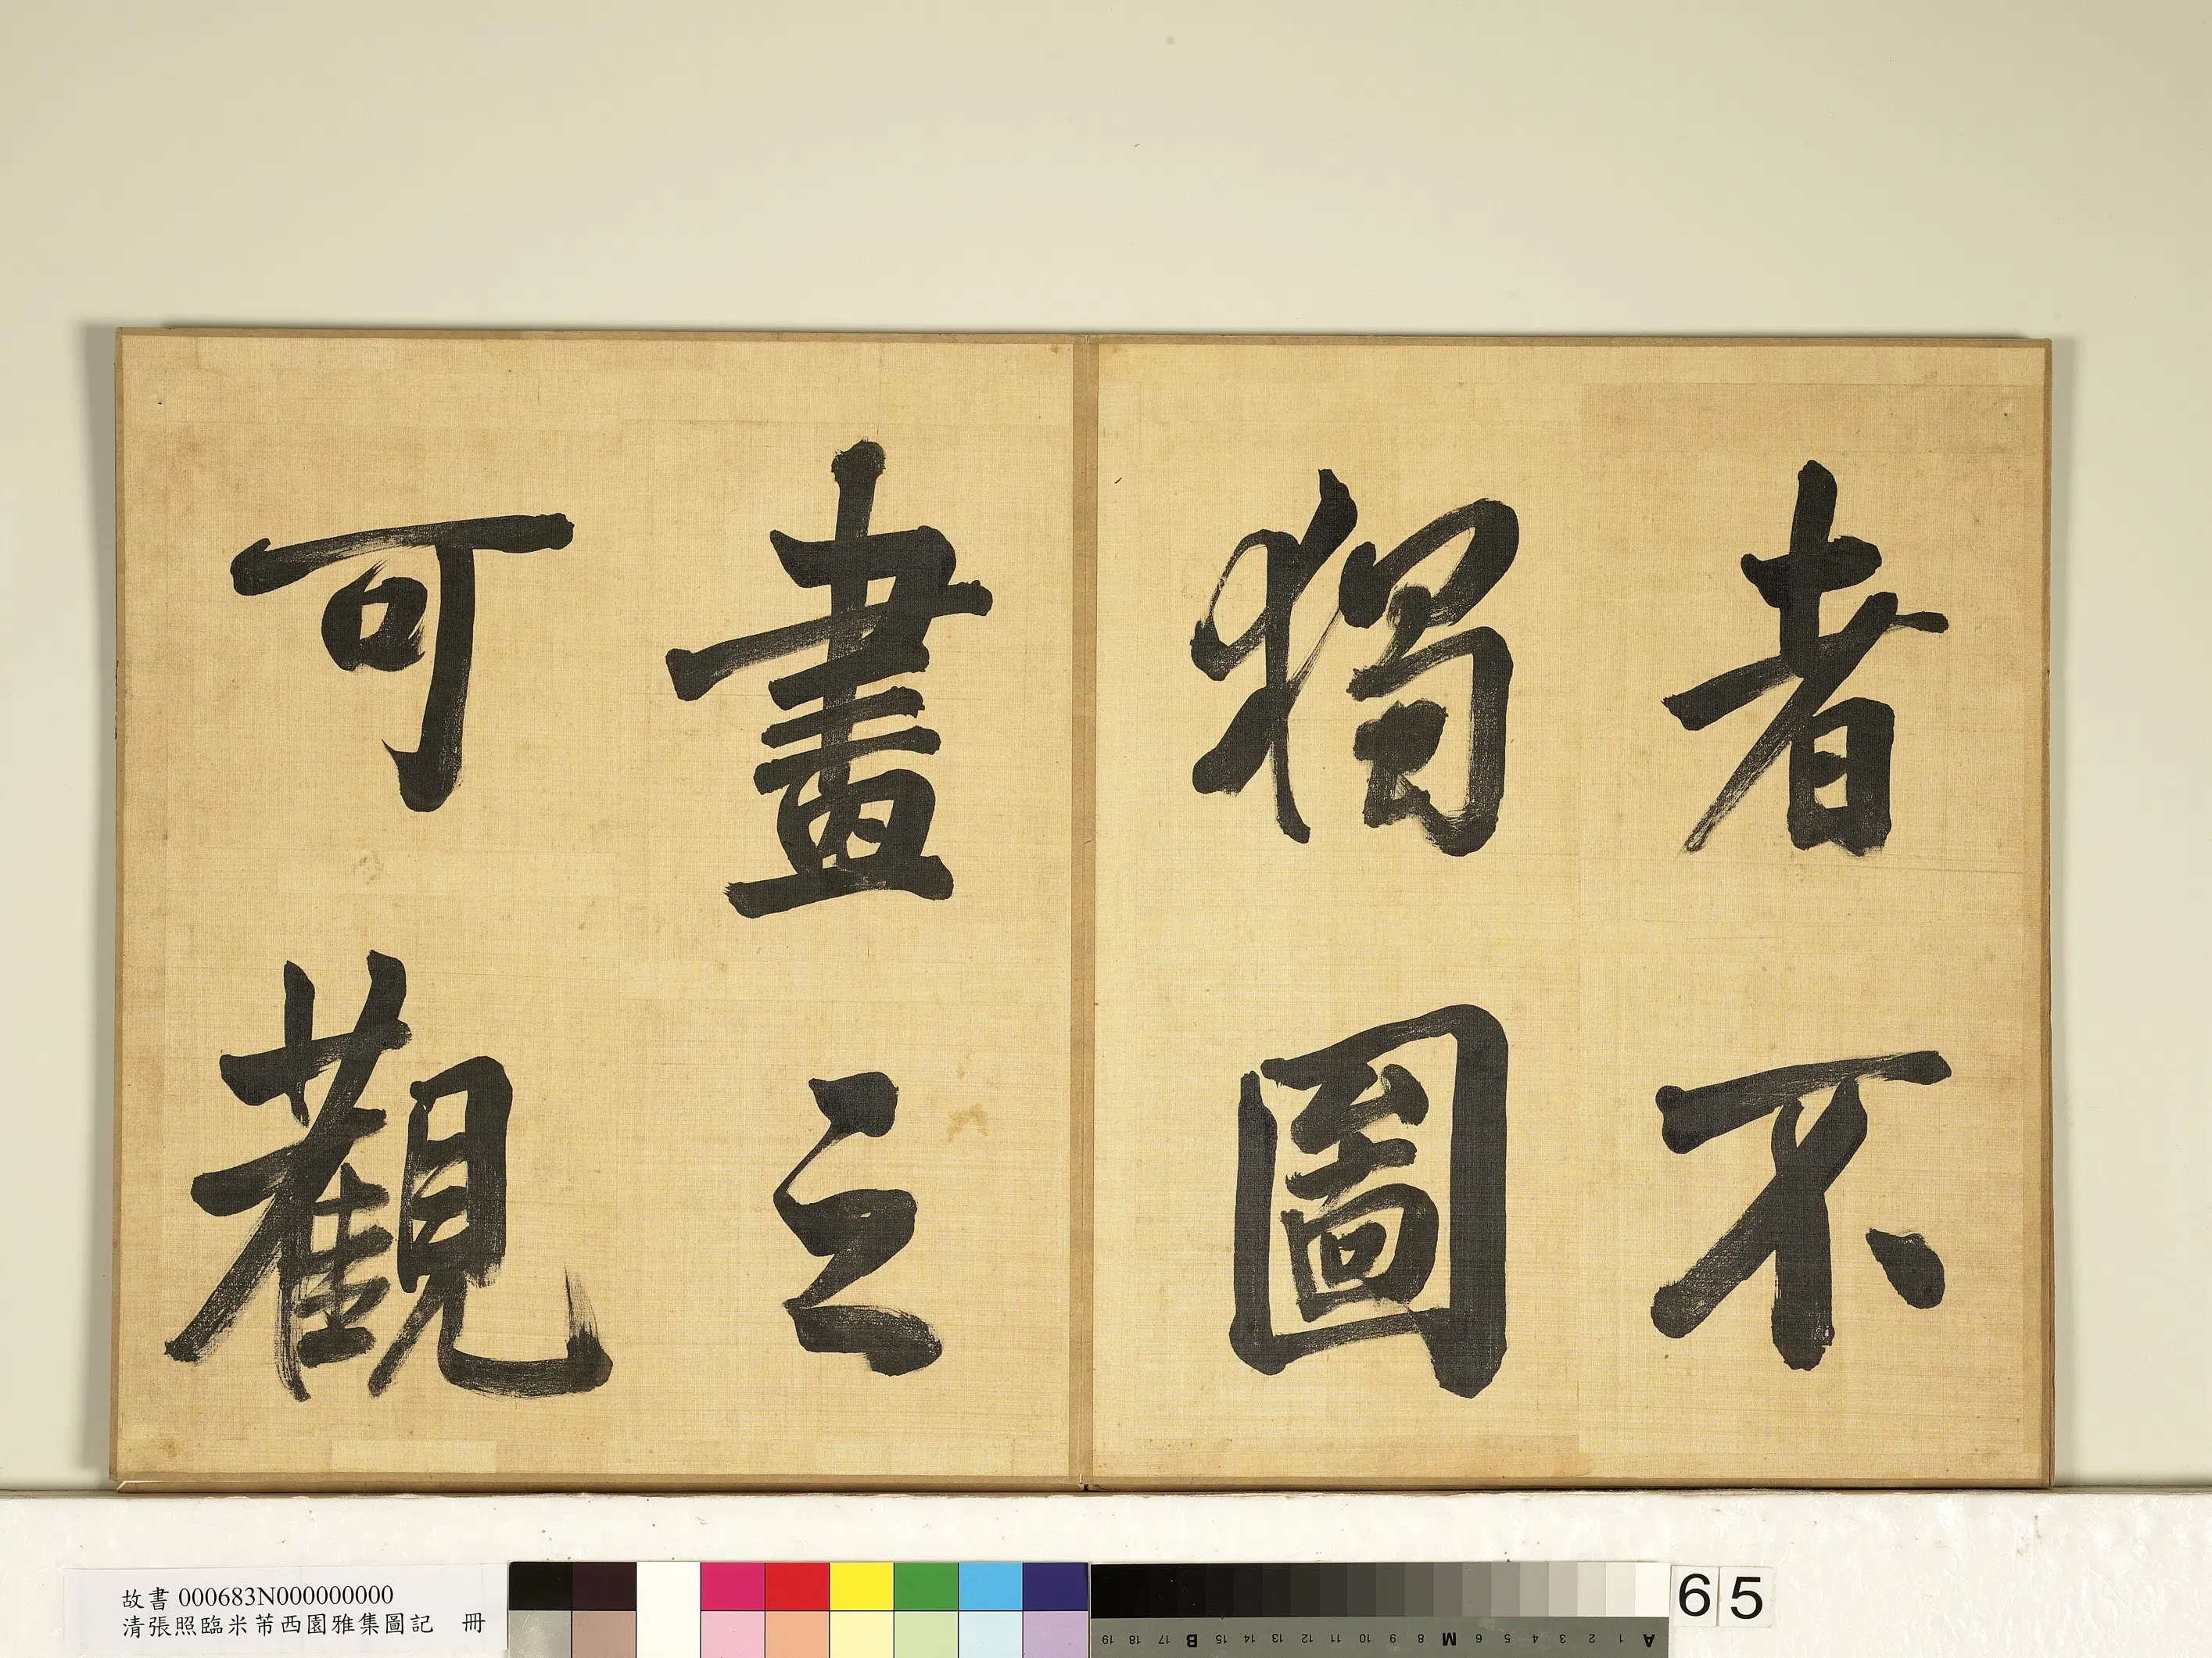 者不
獨圖
畫之
可觀
故書 000683N000000000
清張照臨米芾西園雅集圖記 冊
65
A 1 2 3 4 5 6 M 8 9 10 11 12 13 14 15 B 17 18 19